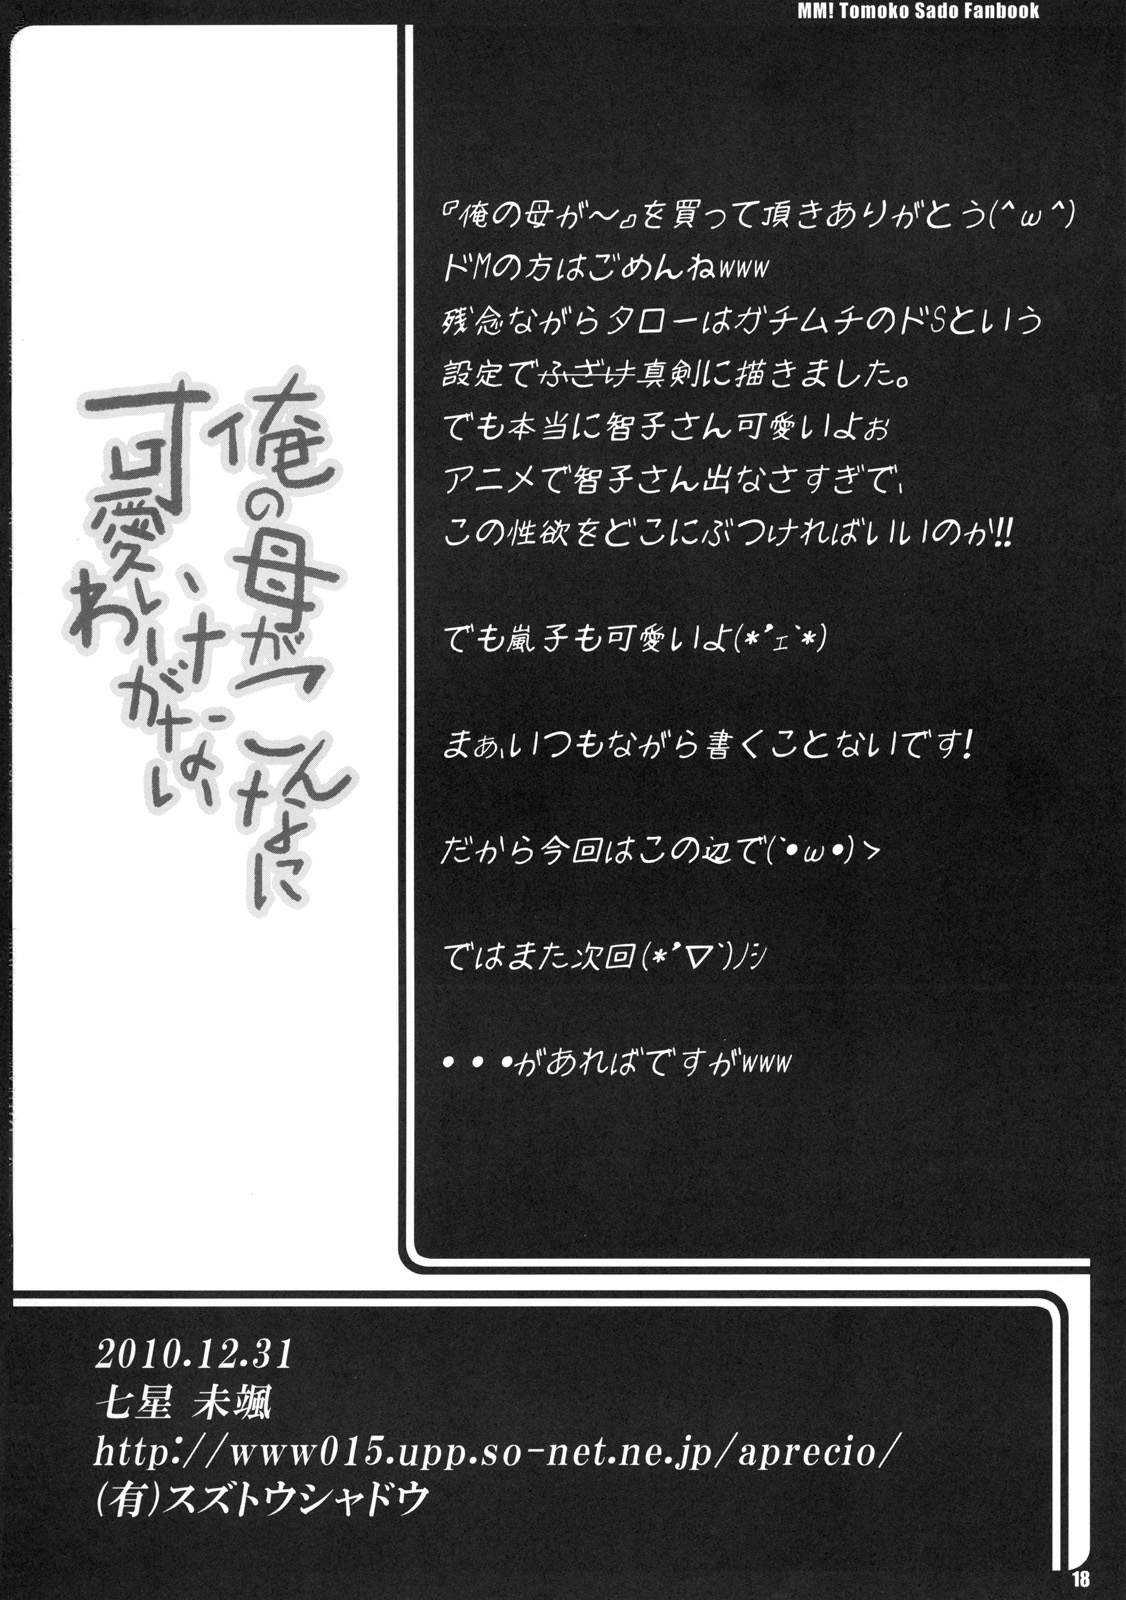 MM! Tomoko Sado Fanbook
俺の母がこんなに
可愛いわけがない
『俺の母が～』を買って頂きありがとう(^ω^)
ドMの方はごめんねwww
残念ながらタローはガチムチのドSという
設定でふざけ真剣に描きました。
でも本当に智子さん可愛いよぉ
アニメで智子さん出なさすぎで、
この性欲をどこにぶつければいいのか!!
でも嵐子も可愛いよ(*'ェ`*)
まぁ、いつもながら書くことないです!
だから今回はこの辺で(`•ω•)ゝ
ではまた次回(*'▽')ﾉｼ
・・・があればですがwww
2010.12.31
七星 未颯
http://www015.upp.so-net.ne.jp/aprecio/
(有)スズトウシャドウ
18